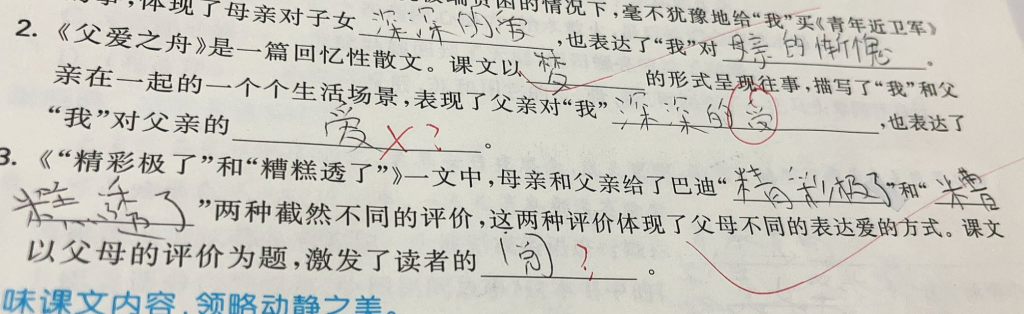 体现了母亲对子女深深的爱,也表达了“我”对母亲的惭愧。
的情况下,毫不犹豫地给“我”买《青年近卫军》
2. 《父爱之舟》是一篇回忆性散文。课文以梦的形式呈现往事,描写了“我”和父
亲在一起的一个个生活场景,表现了父亲对“我”深深的爱,也表达了
“我”对父亲的爱×?。
3. 《“精彩极了”和“糟糕透了”》一文中,母亲和父亲给了巴迪“精彩极了”和“糟
糕透了”两种截然不同的评价,这两种评价体现了父母不同的表达爱的方式。课文
以父母的评价为题,激发了读者的?。
味课文内容,领略动静之美。